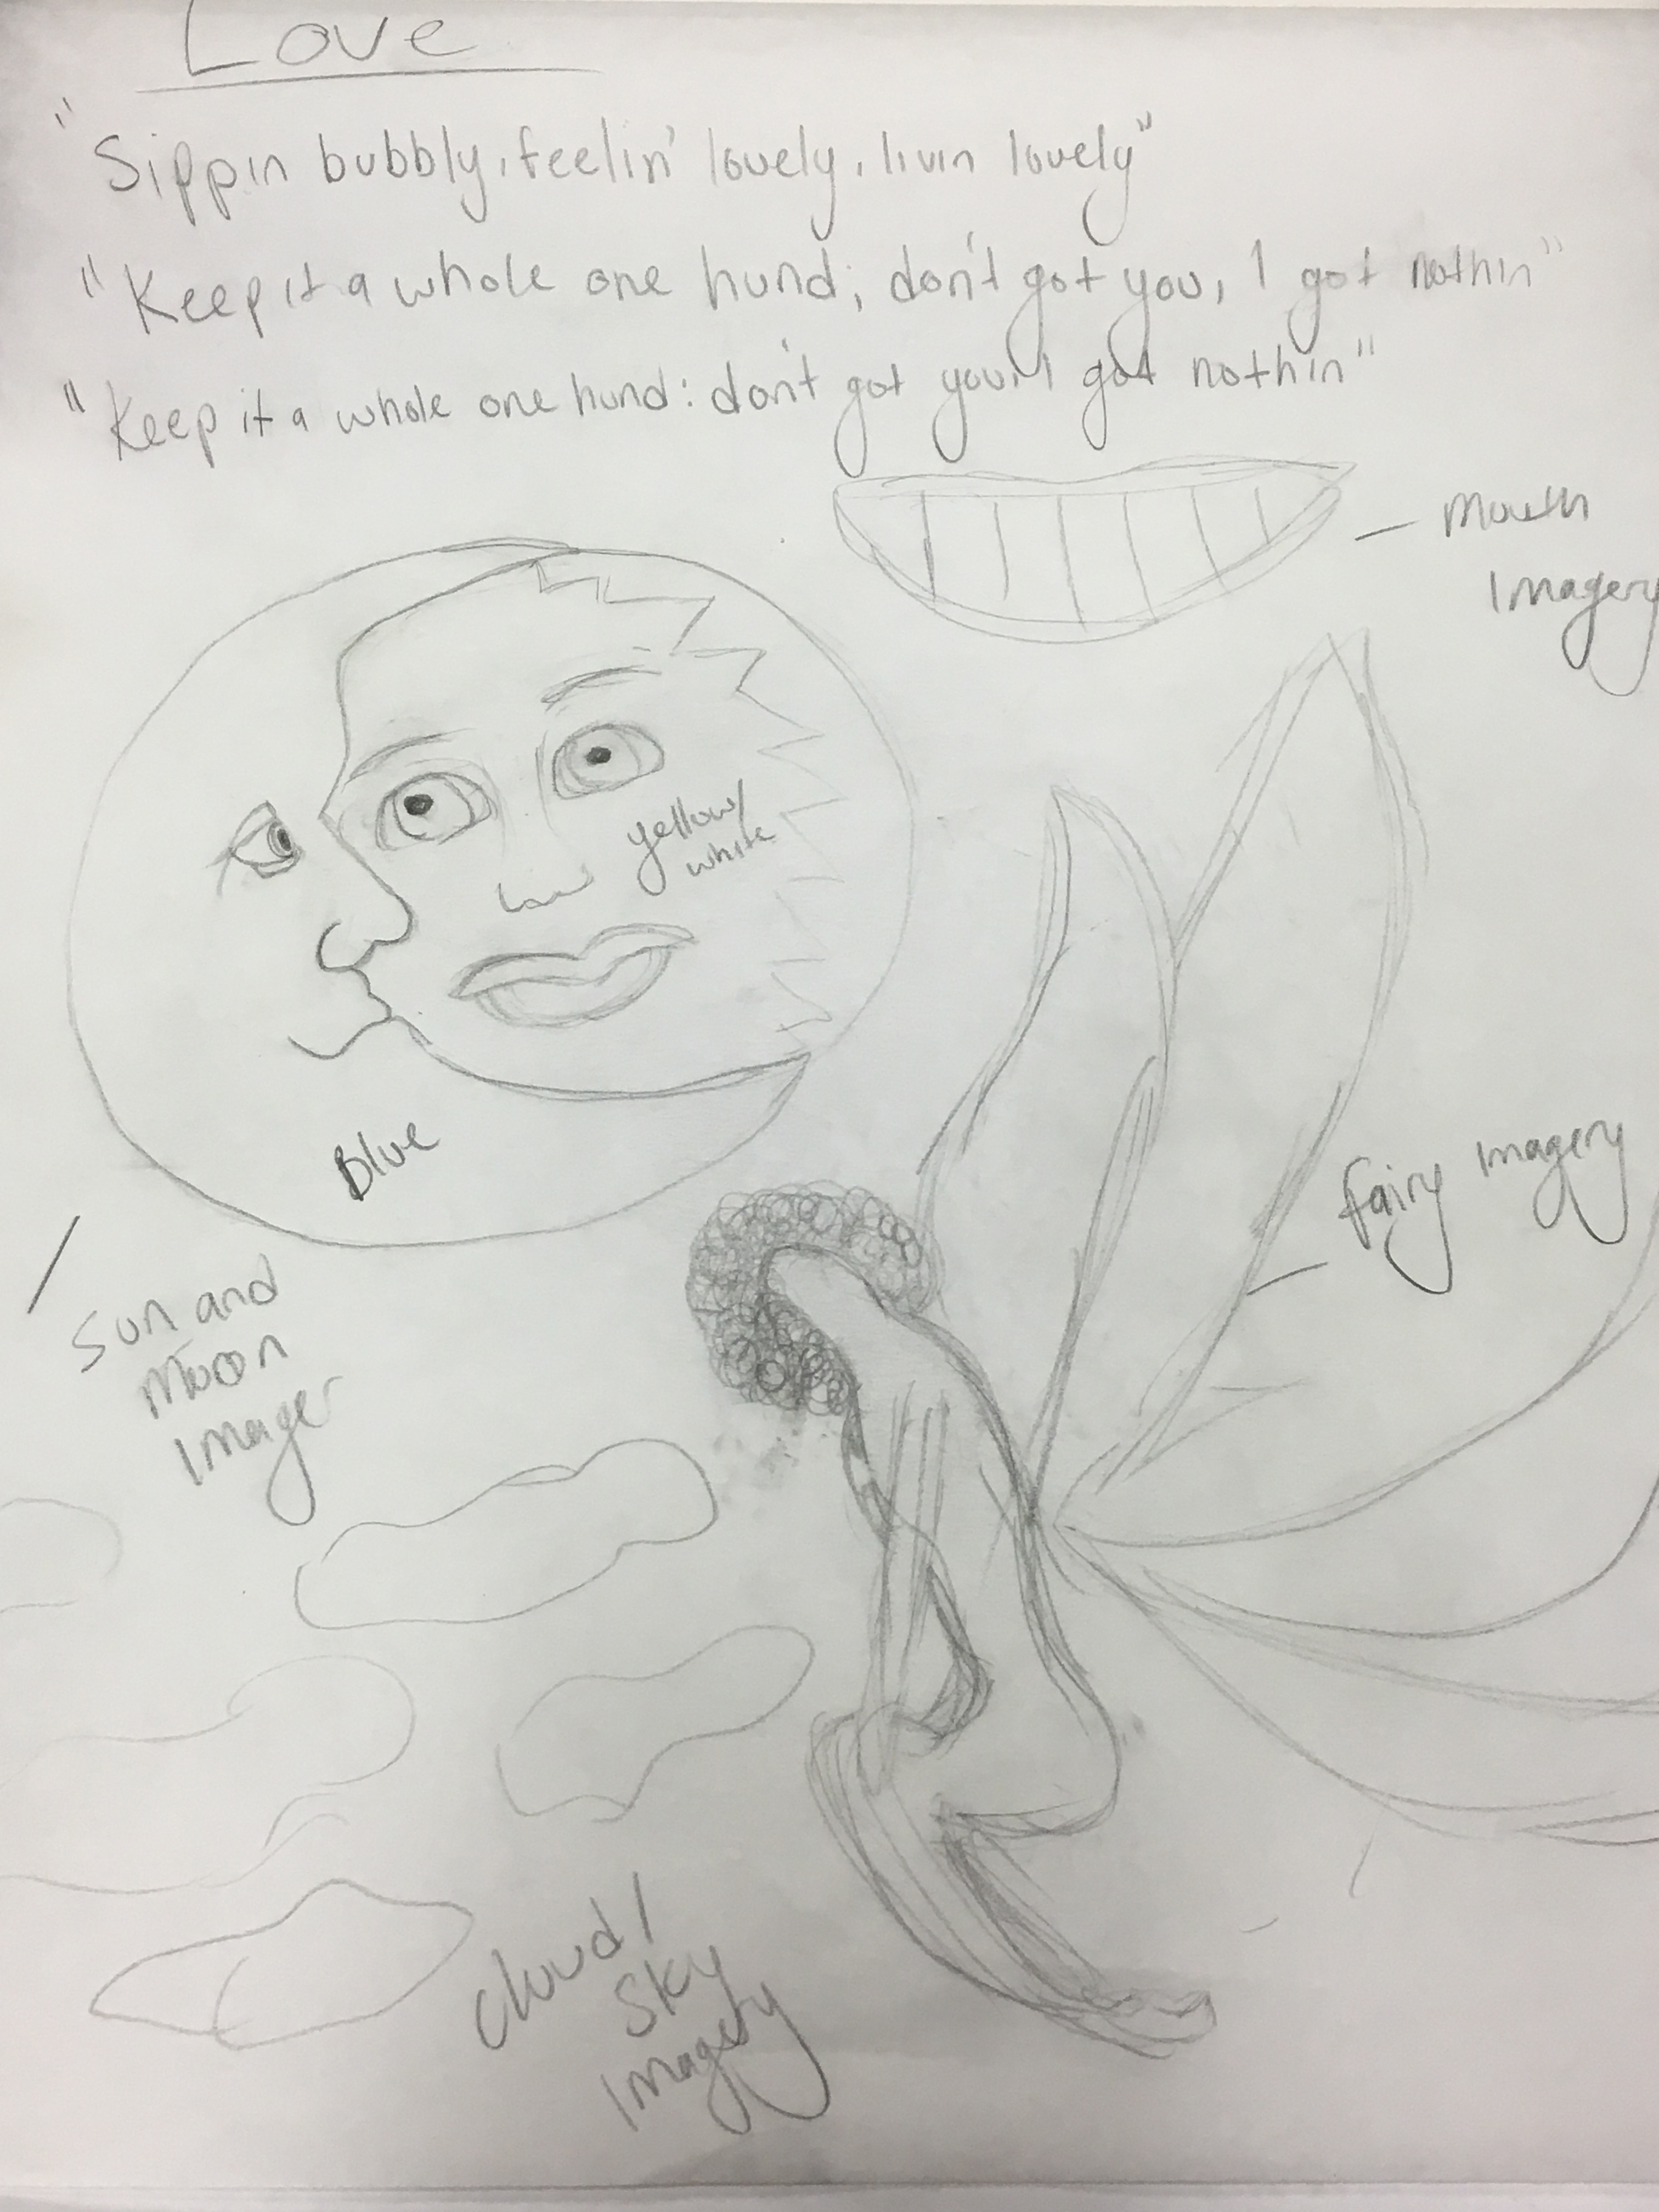 Love
"Sippin bubbly, feelin' lovely, livin lovely"
"Keep it a whole one hund; don't got you, I got nothin"
"Keep it a whole one hund: don't got you, I got nothin"
Mouth
Imagery
yellow/
white
Blue
Sun and
Moon
Imager
Fairy Imagery
Cloud/
Sky
Imagery